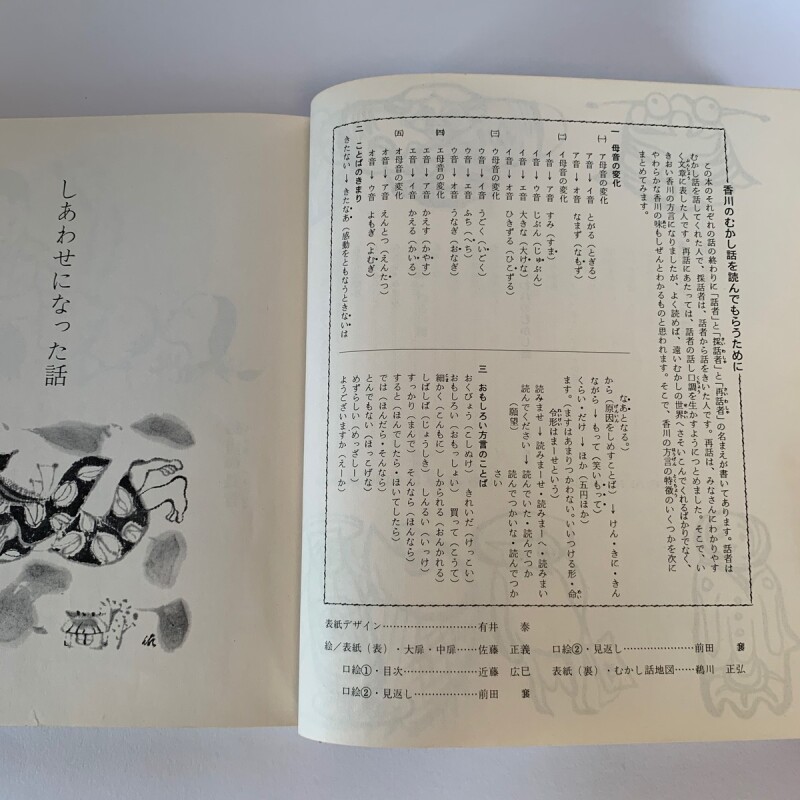 香川のむかし話を読んでもらうために
この本のそれぞれの話の終わりに「話者」と「採話者」と「再話者」の名まえが書いてあります。話者は
むかし話を話してくれた人で、採話者は、話者から話をきいた人です。再話は、みなさんにわかりやす
く文章に表した人です。再話にあたっては、話者の話し口調を生かすようにつとめました。そこで、い
きおい香川の方言になりましたが、よく読めば、遠いむかしの世界へさそいこんでくれるばかりでなく、
やわらかな香川の味もしぜんとわかるものと思われます。そこで、香川の方言の特徴のいくつかを次に
まとめてみます。
一 母音の変化
(一) ア母音の変化
ア音→イ音 とがる(とぎる)
ア音→オ音 なまず(なもず)
(二) イ母音の変化
イ音→ア音 すみ(すま)
イ音→ウ音 じぶん(じゅぶん)
イ音→エ音 大きな(大けな)
イ音→オ音 ひきずる(ひこずる)
(三) ウ母音の変化
ウ音→イ音 うごく(いごく)
ウ音→エ音 ふち(へち)
ウ音→オ音 うなぎ(おなぎ)
(四) エ母音の変化
エ音→ア音 かえす(かやす)
エ音→イ音 かえる(かいる)
(五) オ母音の変化
オ音→ア音 えんとつ(えんたつ)
オ音→ウ音 よもぎ(よむぎ)
二 ことばのきまり
きたない→きたなあ(感動をともなうときないは
なあとなる。)
から(原因をしめすことば)→けん・きに・きん
ながら→もって(笑いもって)
くらい・だけ→ほか(五円ほか)
ます。(ますはあまりつかわない。いいつける形・命
令形はまーせという)
読みませ→読みまーせ・読みまーへ・読みまい
読んでください→読んでいた・読んでつか
(願望) 読んでつかいな・読んでつか
さい
三 おもしろい方言のことば
おくびょう(こしぬけ) きれいだ(けっこい)
おもしろい(おもっしょい) 買って(こうて)
細かく(こんもに) しかられる(おんかれる)
しばしば(じょうしき) しんるい(いっけ)
すっかり(まんで) そんなら(ほんなら)
すると(ほんでしたら・ほいてしたら)
では(ほんだら・そんなら)
とんでもない(ほっこげな)
めずらしい(めっざしー)
ようございますか(えーか)
表紙デザイン……有井 泰
絵/表紙(表)・大扉・中扉……佐藤 正義
口絵①・目次……近藤 広巳
口絵②・見返し……前田
口絵②・見返し……前田
表紙(裏)・むかし話地図……鶴川 正弘
しあわせになった話